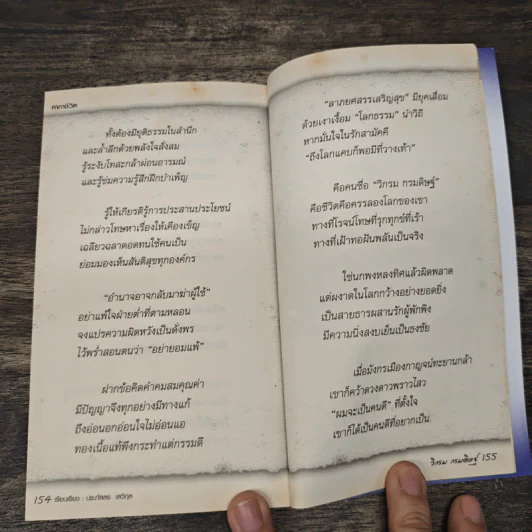 คาถาชีวิต
ทั้งต้องมียุติธรรมในสำนึก
และล้ำลึกด้วยพลังใจสั่งสม
รู้ระงับโทสะกล้าผ่อนอารมณ์
และรู้ข่มความรู้สึกฝึกบำเพ็ญ
รู้ให้เกียรติรู้การประสานประโยชน์
ไม่กล่าวโทษหาเรื่องให้เคืองเข็ญ
เฉลียวฉลาดอดทนใช้คนเป็น
ย่อมมองเห็นสันติสุขทุกองค์กร
“อำนาจอาจกลับมาฆ่าผู้ใช้”
อย่าแพ้ใจฝ่ายต่ำที่ตามหลอน
จงแปรความผิดหวังเป็นดั่งพร
ไว้พร่ำสอนตนว่า “อย่ายอมแพ้”
ฝากข้อคิดคำคมสมคุณค่า
มีปัญญาจึงทุกอย่างมีทางแก้
ถึงอ่อนอกอ่อนใจไม่อ่อนแอ
ทองเนื้อแท้พึงกระทำแต่กรรมดี
154 เรียบเรียง : ประภัสสร เสวิกุล
“ลาภยศสรรเสริญสุข” มียุคเสื่อม
ด้วยเงาเงื่อม “โลกธรรม” นำวิถี
หากมั่นใจในรักสามัคคี
“ถึงโลกแคบก็พอมีที่วางเท้า”
คือคนชื่อ “วิกรม กรมดิษฐ์”
คือชีวิตคือครรลองโลกของเขา
ทางที่โรจน์โทษที่รุกทุกข์ที่เร้า
ทางที่เฝ้าทอฝันพลันเป็นจริง
ใช่นกพงหลงทิศแล้วผิดพลาด
แต่ผงาดในโลกกว้างอย่างยอดยิ่ง
เป็นสายธารผสานรักผู้พักพิง
มีความนิ่งสงบเย็นเป็นธงชัย
เมื่อมังกรเมืองกาญจน์ทะยานกล้า
เขาก็คว้าดวงดาวพราวไสว
“ผมจะเป็นคนดี” ที่ตั้งใจ
เขาก็ได้เป็นคนดีที่อยากเป็น.
วิกรม กรมดิษฐ์ 155